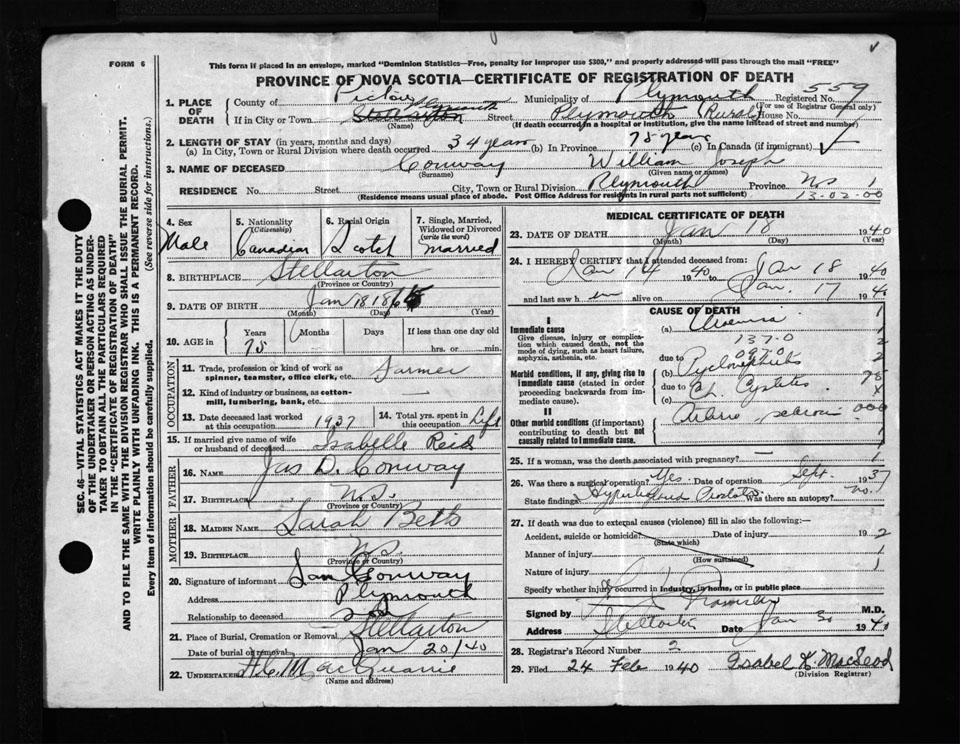 FORM 6
This form if placed in an envelope, marked "Dominion Statistics—Free, penalty for improper use $300," and properly addressed will pass through the mail "FREE"
PROVINCE OF NOVA SCOTIA—CERTIFICATE OF REGISTRATION OF DEATH
SEC. 46—VITAL STATISTICS ACT MAKES IT THE DUTY
OF THE UNDERTAKER OR PERSON ACTING AS UNDER-
TAKER TO OBTAIN ALL THE PARTICULARS REQUIRED
IN THE "CERTIFICATE OF REGISTRATION OF DEATH"
AND TO FILE THE SAME WITH THE DIVISION REGISTRAR WHO SHALL ISSUE THE BURIAL PERMIT.
WRITE PLAINLY WITH UNFADING INK. THIS IS A PERMANENT RECORD.
Every item of information should be carefully supplied. (See reverse side for instructions.)
1. PLACE OF DEATH County of Pictou Municipality of Plymouth Registered No. 559
(For use of Registrar General only)
If in City or Town Stellarton Plymouth Street Plymouth Rural House No.
(Name) (If death occurred in a hospital or institution, give the name instead of street and number)
2. LENGTH OF STAY (in years, months and days)
(a) In City, Town or Rural Division where death occurred 34 years (b) In Province 75 years (c) In Canada (if immigrant)
3. NAME OF DECEASED Conway William Joseph
(Surname) (Given name or names)
RESIDENCE No. Street City, Town or Rural Division Plymouth Province N.S. 1
(Residence means usual place of abode. Post Office Address for residents in rural parts not sufficient) 13-02-00
4. Sex Male
5. Nationality (Citizenship) Canadian
6. Racial Origin Scotch
7. Single, Married, Widowed or Divorced (write the word) married
8. BIRTHPLACE Stellarton
(Province or County)
9. DATE OF BIRTH Jan 18 1865
(Month) (Day) (Year)
10. AGE in Years 75 Months Days If less than one day old hrs. or min.
OCCUPATION
11. Trade, profession or kind of work as spinner, teamster, office clerk, etc. Farmer
12. Kind of industry or business, as cotton-mill, lumbering, bank, etc. —
13. Date deceased last worked at this occupation 1937
14. Total yrs. spent in this occupation Life
15. If married give name of wife or husband of deceased Isabelle Reid
FATHER
16. NAME Jas D. Conway
17. BIRTHPLACE N.S.
(Province or County)
MOTHER
18. MAIDEN NAME Sarah Betts
19. BIRTHPLACE N.S.
(Province or County)
20. Signature of informant Dan Conway
Address Plymouth
Relationship to deceased Son
21. Place of Burial, Cremation or Removal Stellarton
Date of burial or removal Jan 20/40
22. UNDERTAKER MacQuarrie
(Name and address)
MEDICAL CERTIFICATE OF DEATH
23. DATE OF DEATH Jan 18 1940
(Month) (Day) (Year)
24. I HEREBY CERTIFY that I attended deceased from:
Jan 14 1940 to Jan 18 1940
and last saw him alive on Jan. 17 1940
CAUSE OF DEATH
I
Immediate cause (a) Uraemia
Give disease, injury or complication which caused death, not the mode of dying, such as heart failure, asphyxia, asthenia, etc.
137-0
097-0
due to (b) Pyelonephritis
Morbid conditions, if any, giving rise to immediate cause (stated in order proceeding backwards from immediate cause).
due to (c) Ch. Cystitis
II
Other morbid conditions (if important) contributing to death but not causally related to immediate cause. Arterio sclerosis
25. If a woman, was the death associated with pregnancy? —
26. Was there a surgical operation? Yes Date of operation Sept. 1937
State findings Hypertrophied Prostate Was there an autopsy? no.
27. If death was due to external causes (violence) fill in also the following:—
Accident, suicide or homicide? Date of injury 19
(State which)
Manner of injury
(How sustained)
Nature of injury
Specify whether injury occurred in industry, in home, or in public place
Signed by M.D.
Address Stellarton Date Jan 30 1940
28. Registrar's Record Number 2
29. Filed 24 Feb 1940 Isabel K. MacLeod
(Division Registrar)